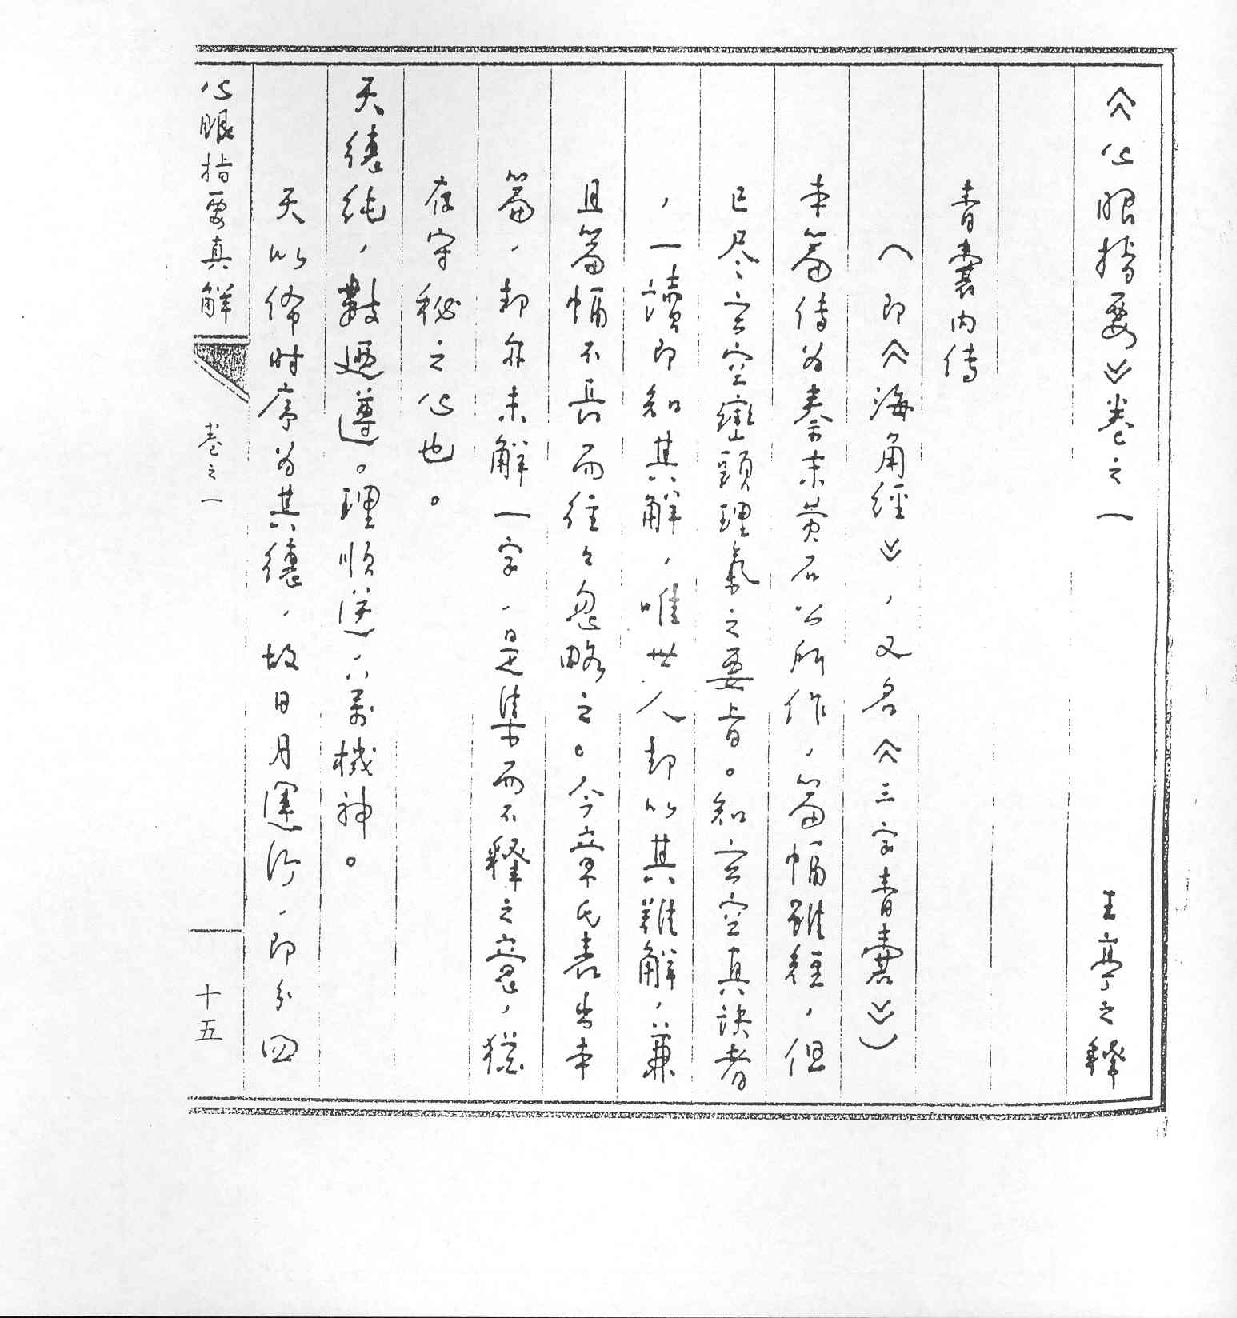 《心眼指要》卷之一　王亭之释
青囊内传
（即《海角經》，又名《三字青囊》）
本篇传为秦末黄石公所作，篇幅雖短，但
已尽玄空巒頭理氣之要旨。知玄空真訣者
，一讀即知其解，唯世人却以其難解，兼
且篇幅不長而往々忽略之。今章氏表出本
篇，却亦未解一字，是集而不釋之意，猶
存守秘之心也。
天德純，數廻遵。理順逆，萬機神。
天以时序为其德，故日月運行，即分四
心眼指要真解
卷之一
十五